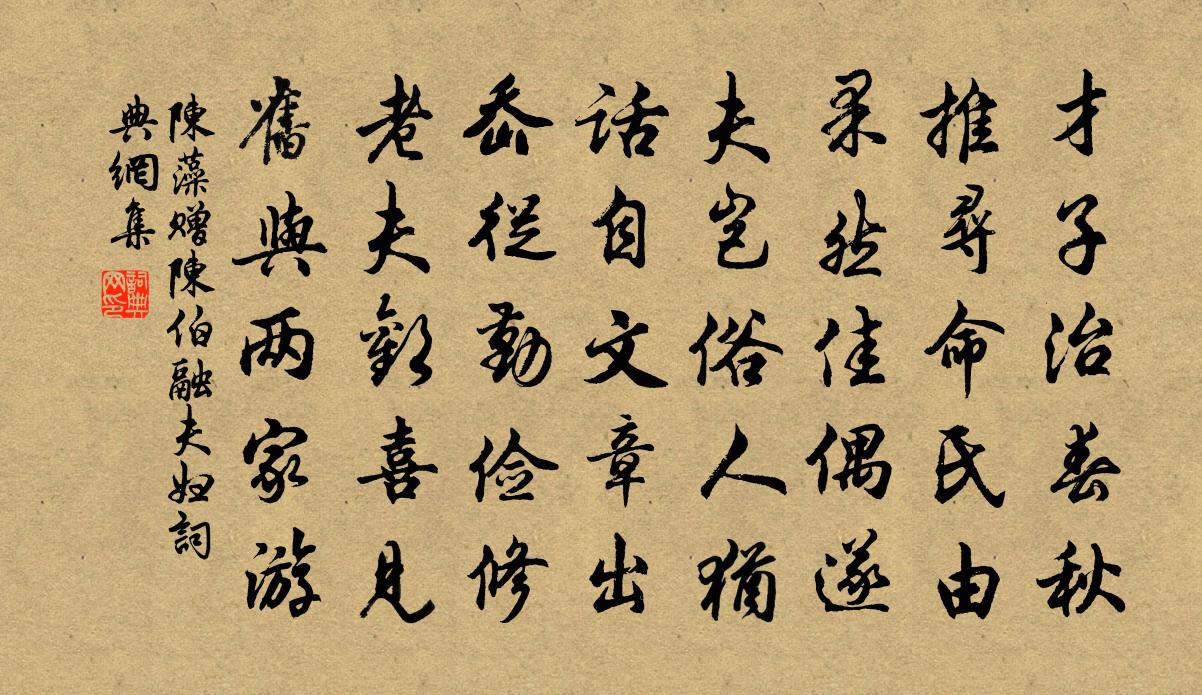 才子治春秋
推尋命民由
果然佳偶遂
夫豈俗人猶
話自文章出
從勤俭修
老夫歡喜見
舊與两家游
陳藻贈陳伯融夫婦詞
典網集
詞典
网印